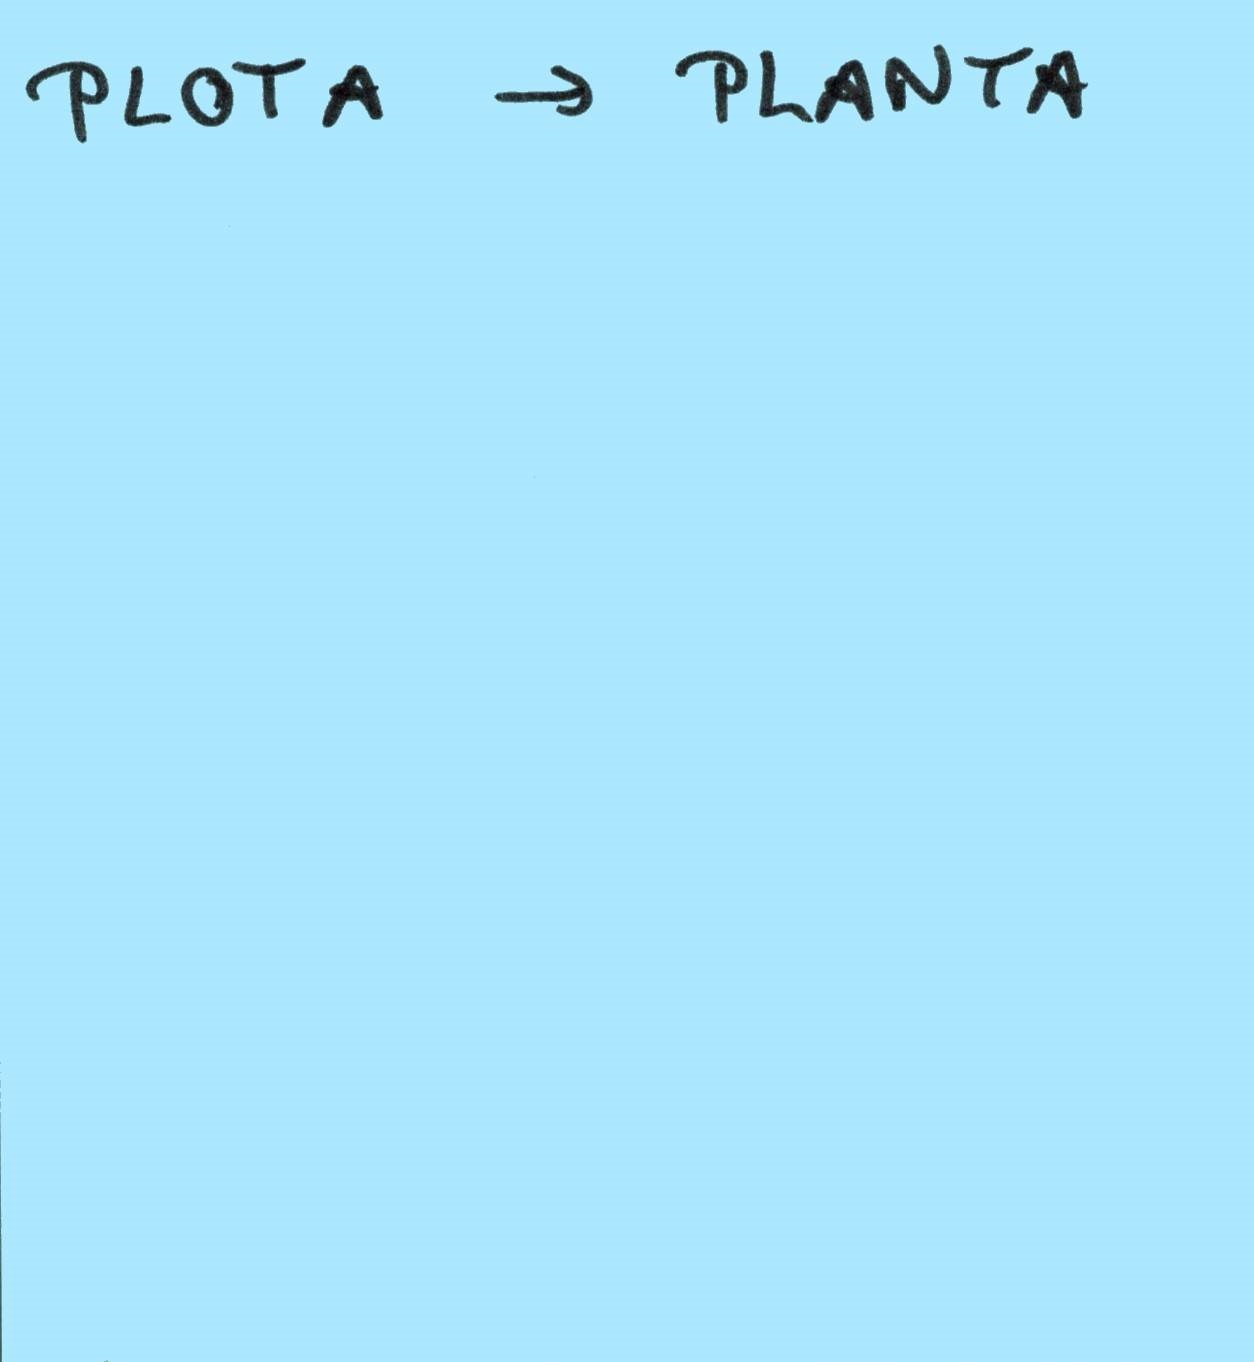 PLOTA → PLANTA